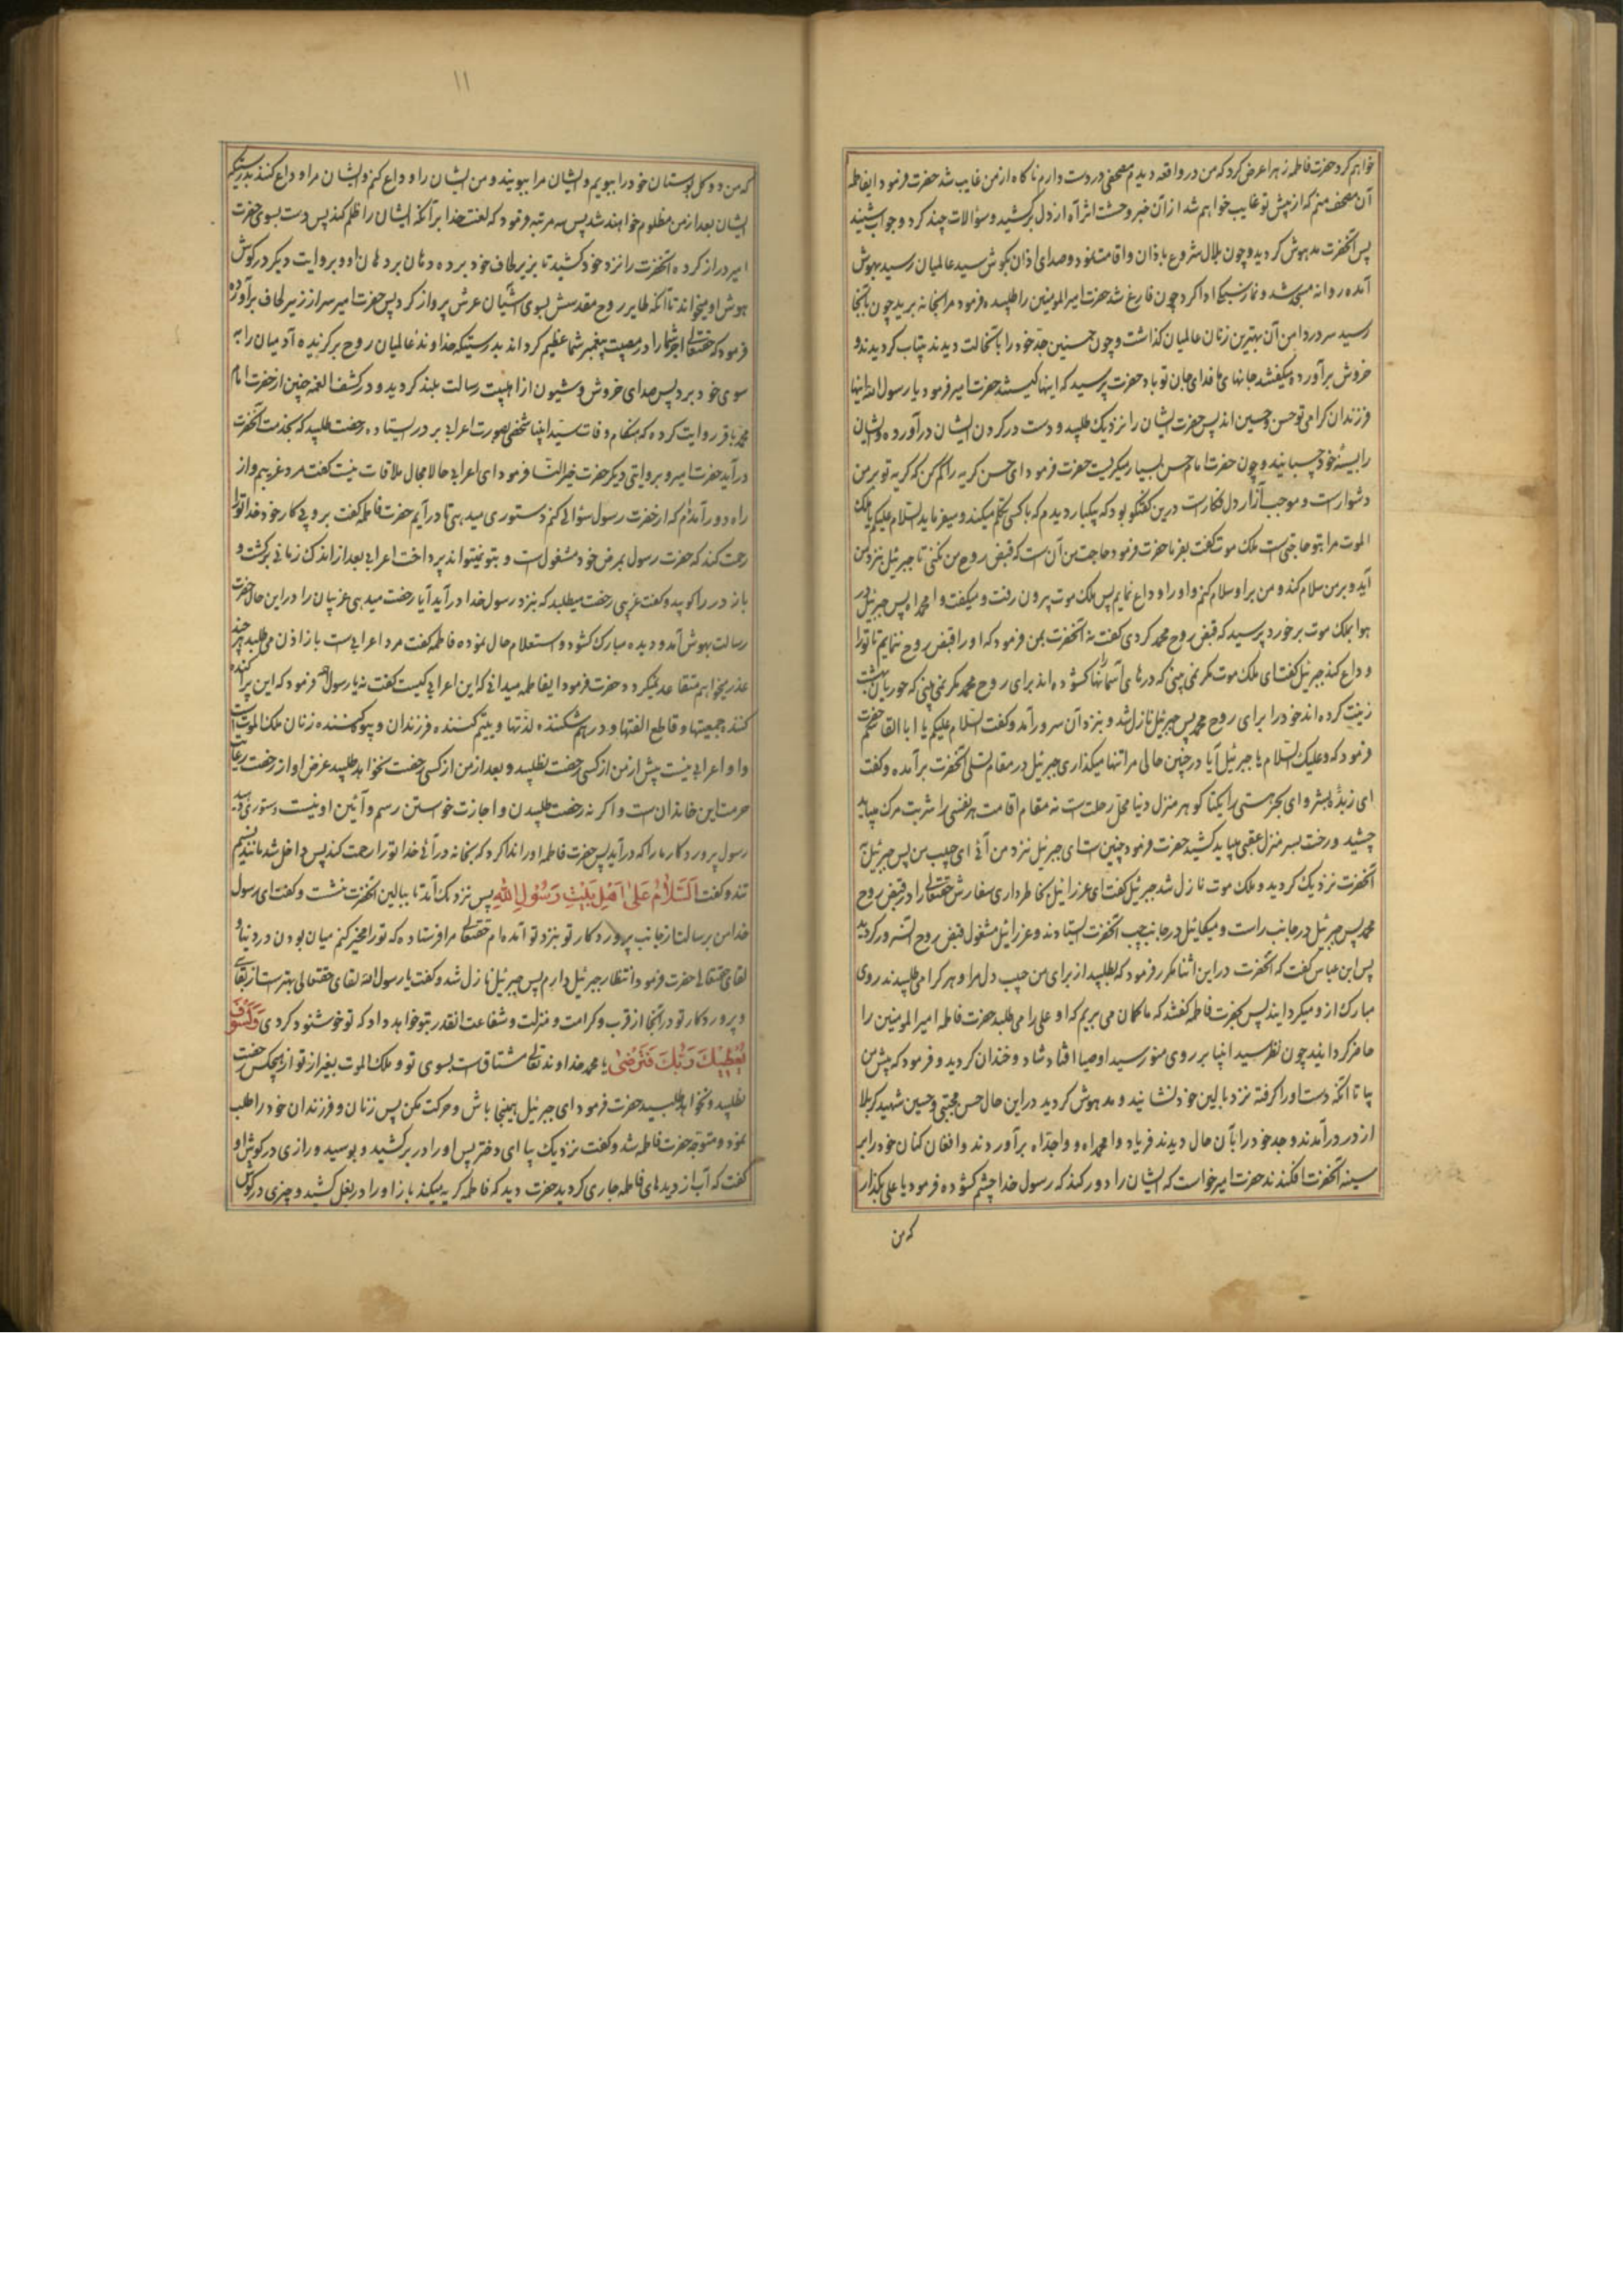 خواهم کرد حضرت فاطمه زهرا عرض کرد که من در واقعه دیدم مصحفی در دست دارم ناکاه از من غایب شد حضرت فرمود ایفاطمه
آن مصحف منم که از پیش تو غایب خواهم شد از آن خبر وحشت اثر آه از دل برکشید و سؤالات چند کرد و جواب شنید
پس آنحضرت مدهوش کردید و چون بلال شروع باذان و اقامت نمود و صدای اذان بکوش سید عالمیان رسید بهوش
آمده روانه مسجد شد و نماز سبکی ادا کرد چون فارغ شد حضرت امیرالمومنین را طلبیده فرمود مرا بخانه برید چون بانجا
رسید سر در دامن آن بهترین زنان عالمیان کذاشت و چون حسنین جدّ خود را بانحالت دیدند بیتاب کردیدند و
خروش برآورده میکفتند جانهای ما فدای جان تو باد حضرت پرسید که اینها کیستند حضرت امیر فرمود یا رسول الله اینها
فرزندان کرامی تو حسن و حسین اند پس حضرت ایشان را نزدیک طلبید و دست در کردن ایشان درآورده و ایشان
را بسینهٔ خود چسبانید و چون حضرت امام حسن بسیار میکریست حضرت فرمود ای حسن کریه را کم کن که کریه تو بر من
دشوار است و موجب آزار دل فکار است درین کفتکو بود که یکبار دیدم که با کسی تکلم میکند و میفرماید السّلام علیکم یا ملک
الموت مرا بتو حاجتی است ملک موت کفت بفرما حضرت فرمود حاجت من آن است که قبض روح من نکنی تا جبرئیل نزد من
آید و بر من سلام کند و من بر او سلام کنم و او را وداع نمایم پس ملک موت بیرون رفت و میکفت وا محمداه پس جبرئیل در
هوا بملک موت برخورد پرسید که قبض روح محمد کردی کفت نه آنحضرت بمن فرمود که او را قبض روح ننمایم تا تو را
وداع کند جبرئیل کفت ای ملک موت مکر نمی بینی که درهای آسمانها را کشوده اند برای روح محمد مکر نمی بینی که حوریان بهشت
زینت کرده اند خود را برای روح محمد پس جبرئیل نازل شد و بنزد آن سرور آمد و کفت السّلام علیکم یا ابا القاسم حضرت
فرمود که و علیک السّلام یا جبرئیل آیا در چنین حالی مرا تنها میکذاری جبرئیل در مقام تسلی آنحضرت برآمده و کفت
ای زبدهٔ بشر و ای بحر هستی را یکتا کوهر منزل دنیا محلّ رحلت است نه مقام اقامت هر نفسی را شربت مرک میباید
چشید و رخت بسر منزل عقبی میباید کشید حضرت فرمود چنین است ای جبرئیل نزد من آئی ای حبیب من پس جبرئیل
آنحضرت نزدیک کردید و ملک موت نازل شد جبرئیل کفت ای عزرائیل بخاطر داری سفارش حقتعالی را در قبض روح
محمد پس جبرئیل در جانب راست و میکائیل در جانب چپ آنحضرت ایستادند و عزرائیل مشغول قبض روح آنسرور کردید
پس ابن عباس کفت که آنحضرت در این اثنا مکرر فرمود که بطلبید از برای من حبیب دل مرا و هر کرا می طلبیدند روی
مبارک از و میکردانید پس بحضرت فاطمه کفتند که ما کمان می بریم که او علی را می طلبد حضرت فاطمه امیرالمومنین را
حاضر کردانید چون نظر سید انبیا بر روی منور سید اوصیا افتاد شاد و خندان کردید و فرمود که پیش من
بیا تا آنکه دست او را کرفته نزد بالین خود نشانید و مدهوش کردید در این حال حسن مجتبی و حسین شهید کربلا
از در درآمدند و جد خود را بآن حال دیدند فریاد وا محمداه و واجداه برآوردند و افغان کنان خود را بر
سینه آنحضرت افکندند حضرت امیر خواست که ایشان را دور کند که رسول خدا چشم کشوده فرمود یا علی بکذار
که من
۱۱
که من دو کل بوستان خود را ببویم و ایشان مرا ببویند و من ایشان را وداع کنم و ایشان مرا وداع کنند بدرستیکه
ایشان بعد از من مظلوم خواهند شد پس سه مرتبه فرمود که لعنت خدا بر آنکه ایشان را ظلم کند پس دست بسوی حضرت
امیر دراز کرده آنحضرت را نزد خود کشید تا بزیر لحاف خود برده و دهان بر دهان او و بروایت دیکر در کوش
هوش او میخواند تا آنکه طایر روح مقدسش بسوی آشیان عرش پرواز کرد پس حضرت امیر سر از زیر لحاف برآورده
فرمود که حقتعالی اجر شما را در مصیبت پیغمبر شما عظیم کرداند بدرستیکه خداوند عالمیان روح برکزیده آدمیان را به
سوی خود برد پس صدای خروش و شیون از اهلبیت رسالت بلند کردید و در کشف الغمه چنین از حضرت امام
محمد باقر روایت کرده که هنکام وفات سید انبیا شخصی بصورت اعرابی بر در ایستاده رخصت طلبید که بخدمت آنحضرت
درآید حضرت امیر و بروایتی دیکر حضرت خیرالنسا فرمود ای اعرابی حالا مجال ملاقات نیست کفت مرد غریبم و از
راه دور آمده ام که از حضرت رسول سؤالی کنم دستوری میدهی تا درآیم حضرت فاطمه کفت برو پی کار خود خدا تو را
رحمت کند که حضرت رسول بمرض خود مشغول است و بتو نمیتواند پرداخت اعرابی بعد از اندک زمانی برکشت و
باز در را کوبید و کفت غریبی رخصت میطلبد که بنزد رسول خدا درآید آیا رخصت میدهی غریبان را در این حال حضرت
رسالت بهوش آمد و دیده مبارک کشود و استعلام حال نموده فاطمه کفت مرد اعرابیست باز اذن می طلبد هر چند
عذر میخواهم متقاعد نمیکردد حضرت فرمود ایفاطمه میدانی که این اعرابی کیست کفت نه یا رسول الله فرمود که این پراکنده
کننده جمعیتها و قاطع الفتها و درهم شکننده لذّتها و یتیم کننده فرزندان و بیوه کننده زنان ملک الموت است
دا و اعرابی نیست پیش از من از کسی رخصت نطلبید و بعد از من از کسی رخصت نخواهد طلبید غرض او از رخصت رعایت
حرمت این خاندان است و اکر نه رخصت طلبیدن و اجازت خواستن رسم و آئین او نیست دستوری دهید
رسول پروردکار ما را که درآید پس حضرت فاطمه او را ندا کرد که بخانه درآئی خدا تو را رحمت کند پس داخل شد مانند نسیم
تند و کفت اَلسَّلامُ عَلیٰ اَهْلِ بَیْتِ رَسُولِ اللهِ پس نزدیک آمد تا ببالین آنحضرت نشست و کفت ای رسول
خدا من برسالت از جانب پروردکار تو بنزد تو آمده ام حقتعالی مرا فرستاده که تو را مخیر کنم میان بودن در دنیا و
لقای حقتعالی حضرت فرمود انتظار جبرئیل دارم پس جبرئیل نازل شد و کفت یا رسول الله لقای حقتعالی بهتر است از بقای
و پروردکار تو در آنجا از قرب و کرامت و منزلت و شفاعت آنقدر بتو خواهد داد که تو خوشنود کردی وَلَسَوْفَ
یُعْطِیْکَ رَبُّکَ فَتَرْضیٰ یا محمد خداوند تعالی مشتاق است بسوی تو و ملک الموت بغیر از تو از هیچکس رخصت
نطلبید و نخواهد طلبید حضرت فرمود ای جبرئیل همینجا باش و حرکت مکن پس زنان و فرزندان خود را طلب
نمود و متوجه حضرت فاطمه شد و کفت نزدیک بیا ای دختر پس او را در بر کشید و بوسید و رازی در کوش او
کفت که آب از دیدهای فاطمه جاری کردید حضرت دید که فاطمه کریه میکند باز او را در بغل کشید و چیزی در کوش